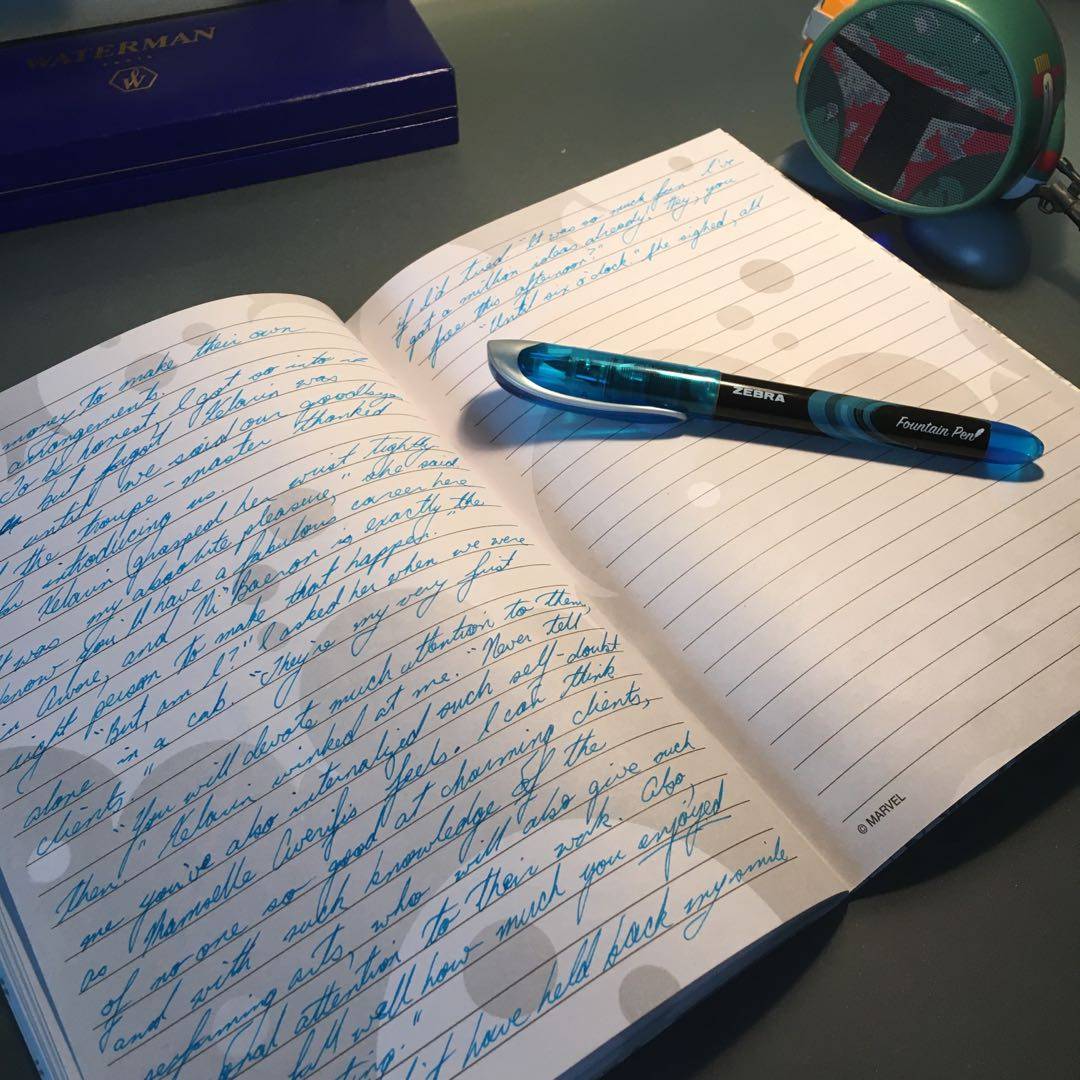 WATERMAN
PARIS
money to make their own
arrangements.
To be honest I got so into
but forgot Kelavin was
until we said our goodbyes
the troupe-master thanked
for introducing us.
Kelavin grasped her wrist tightly
was my absolute pleasure," she said.
know you'll have a fabulous career here
in Avore, and Ni Baeron is exactly the
right person to make that happen."
"But, am I?" I asked her when we were
alone in a cab. "They're my very first
clients."
"You will devote much attention to them,
then." Kelavin winked at me. "Never tell
me you've also internalized such self-doubt
as Mamselle Averifis feels. I can think
of no one so good at charming clients,
and with such knowledge of the
performing arts, who will also give such
attention to their work. Also,
full well how much you enjoyed
have held back my smile
if I'd tried. "It was so much fun. I've
got a million ideas already! Hey, you
free this afternoon?"
"Until six o'clock." She sighed, all
ZEBRA
Fountain Pen
© MARVEL